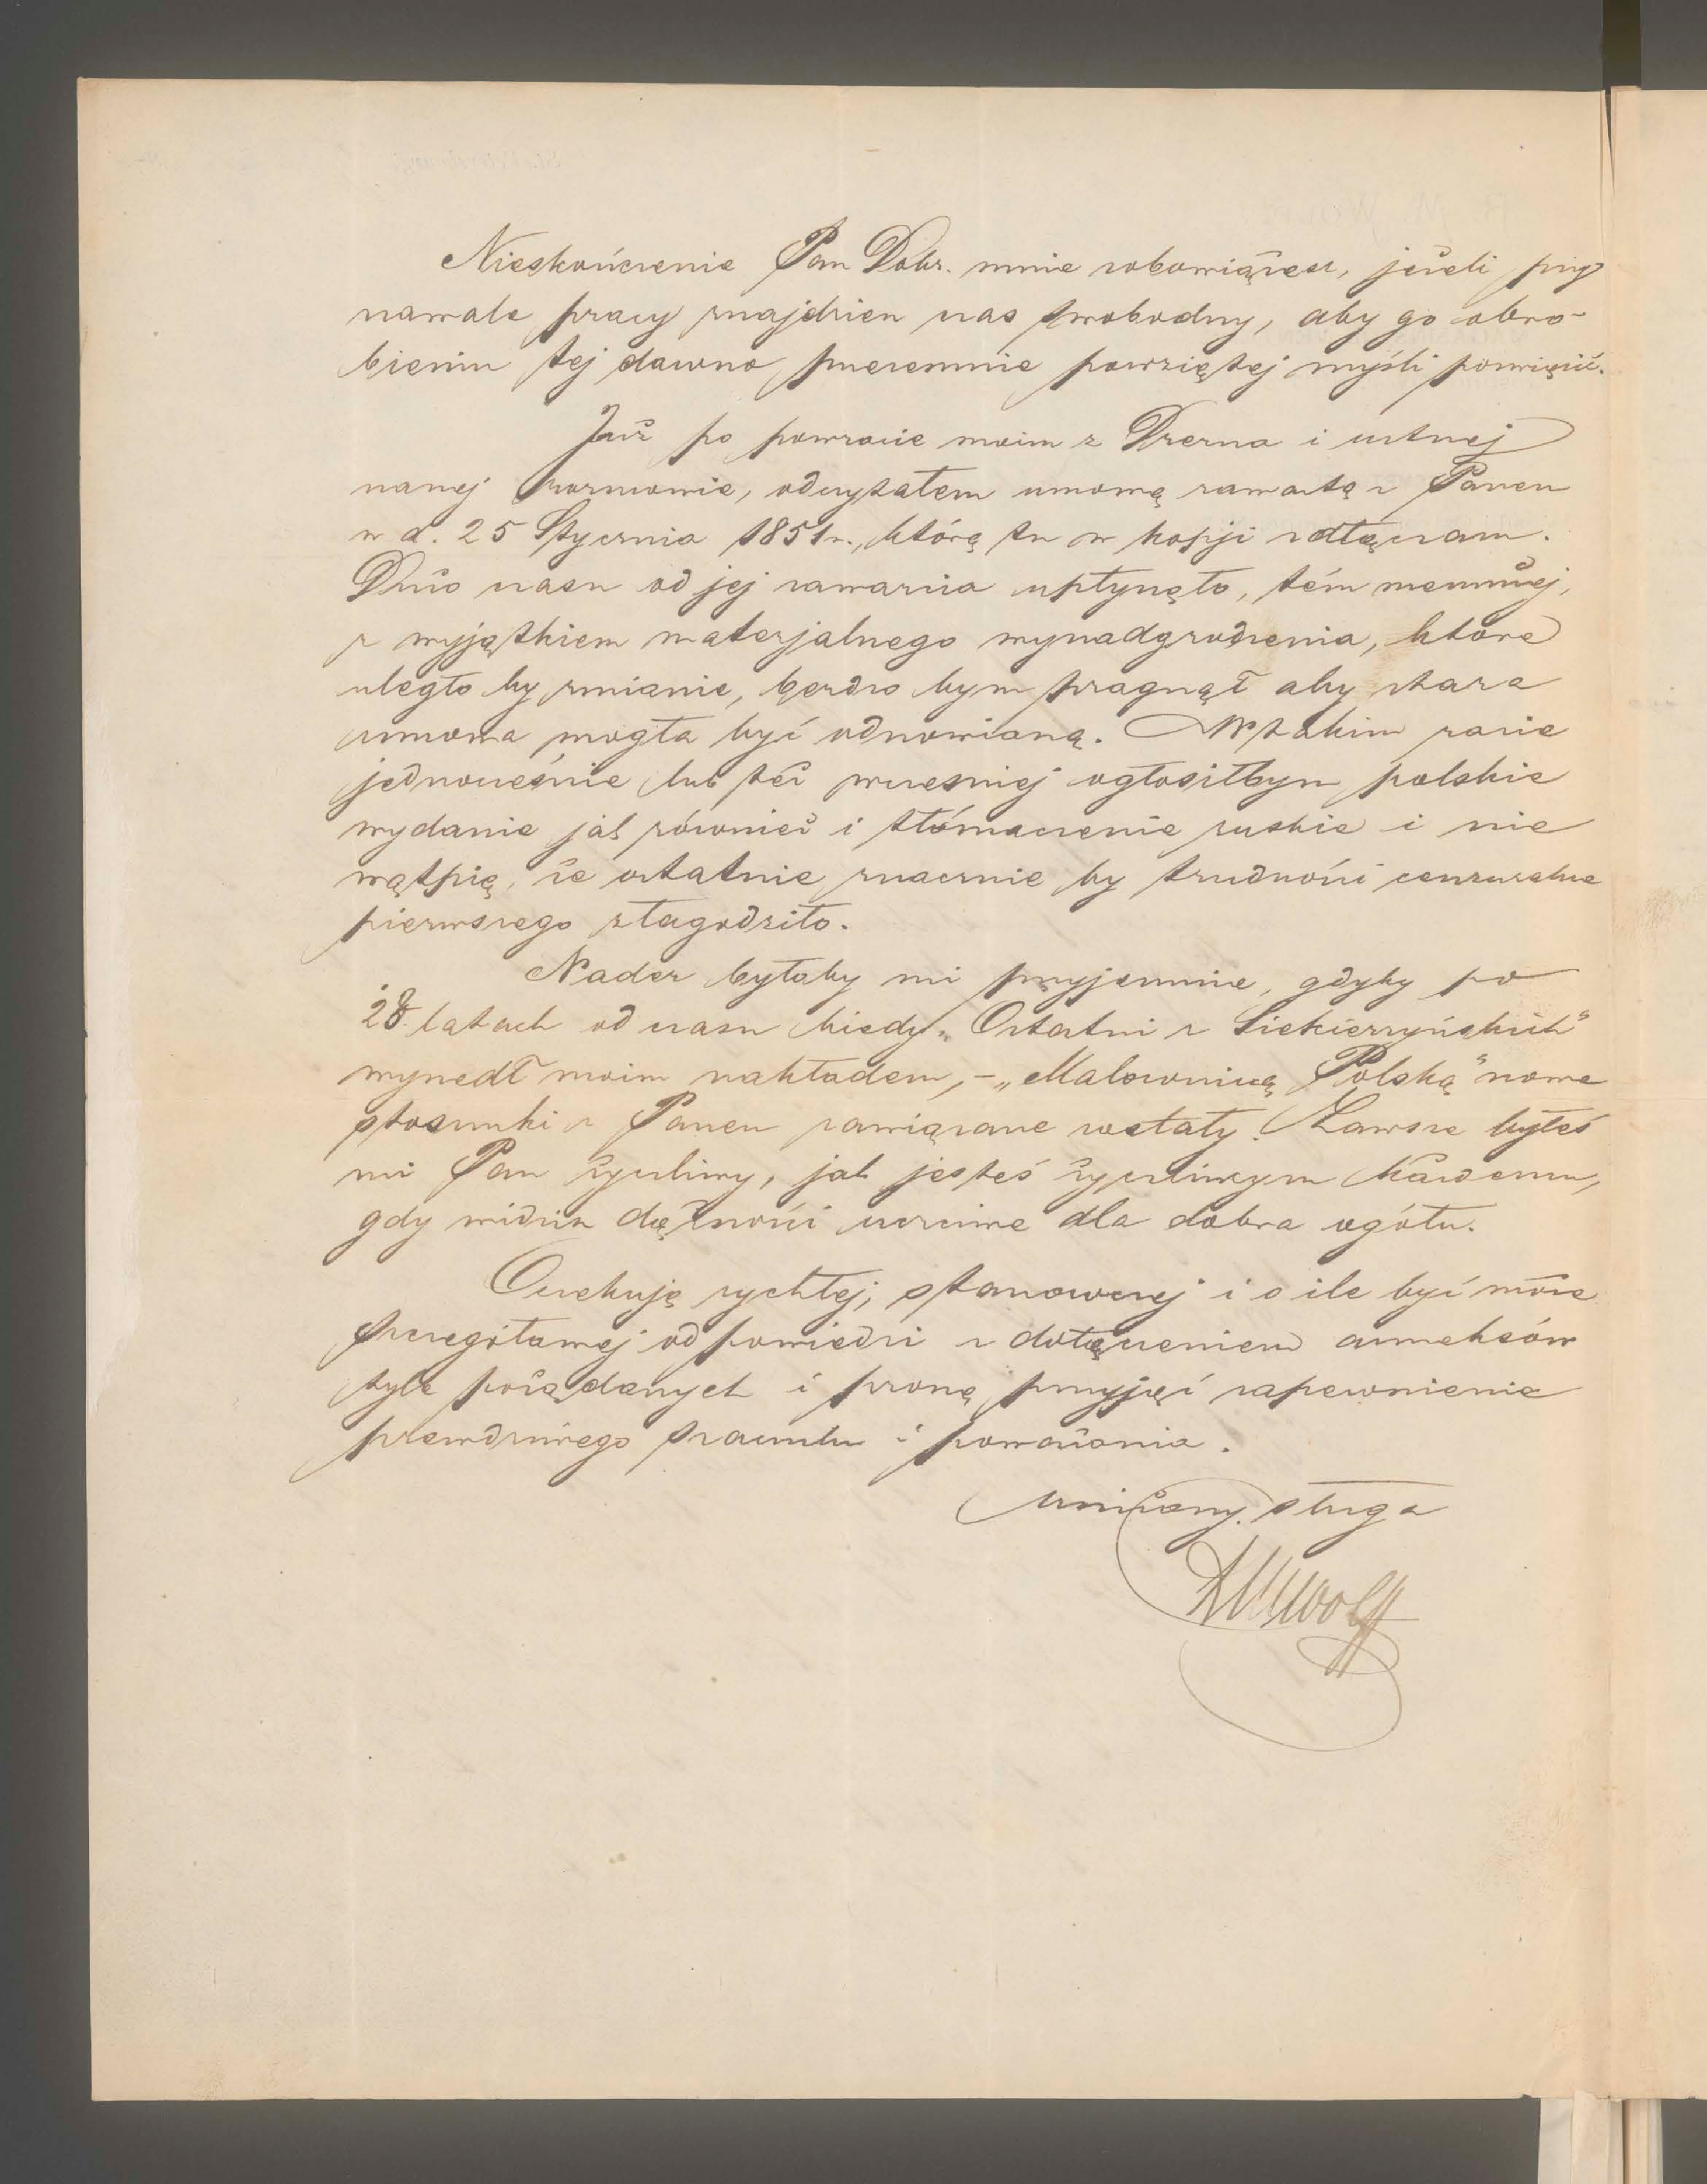 Nieskończenie Pan Dobr. mnie zobowiążesz, jeżeli przy
nawale pracy znajdziesz czas swobodny, aby go obro-
bieniu tej dawno przezemnie powziętej myśli poświęcić.
Już po powrocie moim z Drezna i ustnej
naszej rozmowie, odczytałem umowę zawartą z Panem
w d. 25 Stycznia 1851 r., którą tu w kopji załączam.
Dużo czasu od jej zawarcia upłynęło, tém niemniej,
z wyjątkiem materjalnego wynadgrodzenia, które
uległo by zmianie, bardzo bym pragnął aby stara
umowa mogła być odnowioną. W takim razie
jednocześnie lub też wcześniej ogłosiłbym polskie
wydanie jak również i tłómaczenie ruskie i nie
wątpię, że ostatnie znacznie by trudności cenzuralne
pierwszego złagodziło.
Nader byłoby mi przyjemnie, gdyby po
28 latach od czasu kiedy „Ostatni z Siekierzyńskich"
wyszedł moim nakładem, – „Malowniczą Polską" nowe
stosunki z Panem zawiązane zostały. Zawsze byłeś
mi Pan życzliwy, jak jesteś życzliwym każdemu,
gdy widzisz dążności uczciwe dla dobra ogółu.
Oczekuję rychłej, stanowczej i o ile być może
szczegółowej odpowiedzi z dołączeniem anneksów
tyle pożądanych i proszę przyjąć zapewnienie
prawdziwego szacunku i poważania.
uniżony sługa
BMWolff